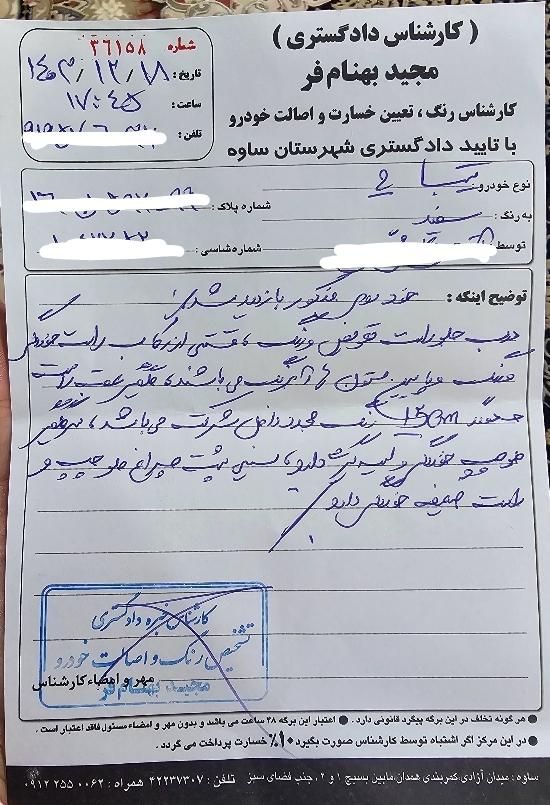 ( کارشناس دادگستری )
مجید بهنام فر
کارشناس رنگ ، تعیین خسارت و اصالت خودرو
با تایید دادگستری شهرستان ساوه
شماره ۳۶۱۵۸
تاریخ : ۱۴۰۳/۱۲/۱۸
ساعت : ۱۷:۴۵
تلفن :
نوع خودرو : تیبا ۲
شماره پلاک :
به رنگ : سفید
توسط
شماره شاسی :
توضیح اینکه : خودروی مذکور بازدید شد
درب جلو راست تعویض و رنگ ، قسمتی از رکاب راست خوردگی
و رنگ و پایین ستون رنگ می باشند ، گلگیر عقب راست
15cm رنگ مجدد داخل شرکت می باشد ، سرگلگیر
خوردگی و دارد ، سینی پشت چراغ جلو چپ و
راست ضعیف خوردگی دارد
کارشناس خبره دادگستری
تشخیص رنگ و اصالت خودرو
مجید بهنام فر
مهر و امضاء کارشناس
● هر گونه تخلف در این برگه پیگرد قانونی دارد . ● اعتبار این برگه ۲۸ ساعت می باشد و بدون مهر و امضاء مسئول فاقد اعتبار است .
● در این مرکز اگر اشتباه توسط کارشناس صورت بگیرد ۱۰٪ خسارت پرداخت می گردد .
ساوه : میدان آزادی، کمربندی همدان، مابین بسیج ۱ و ۲، جنب فضای سبز تلفن : ۴۲۲۳۷۳۰۷ همراه : ۰۹۱۲ ۲۵۵ ۰۰۶۲